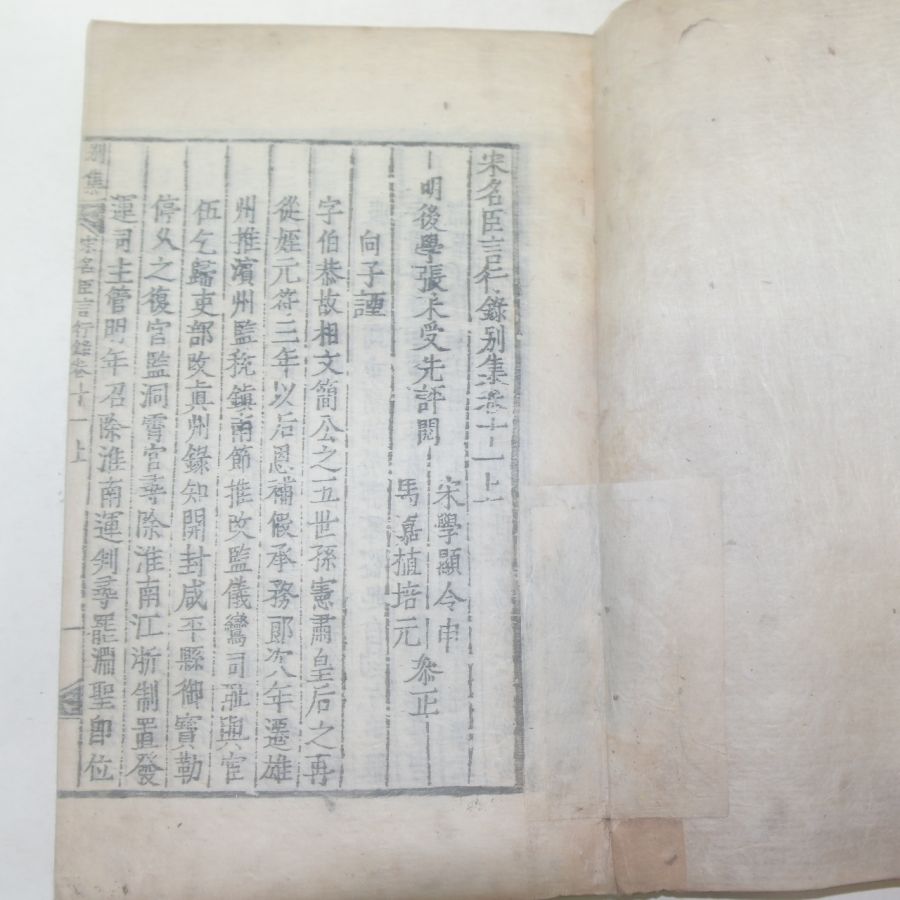 宋名臣言行錄别集卷十一上
明後學張采受先評閱
宋學顯令申
馬嘉植培元
叅正
向子諲
字伯恭故相文簡公之五世孫憲肅皇后之再
從姪元符三年以后恩補假承務郎次年遷雄
州推濱州監稅鎮南節推改監儀鸞司
伍乞歸吏部改真州錄知開封咸平縣御寶勒
停久之復官監洞霄官尋除淮南江浙制置發
運司主管明年召除淮南運判尋罷淵聖即位
别集
宋名臣言行錄卷十一上
一